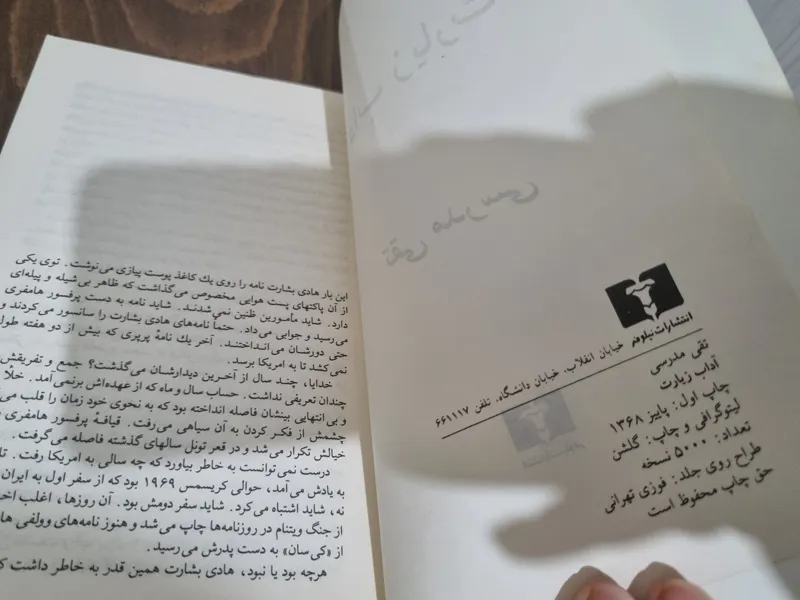 زیارت
تقی مدرسی
انتشارات نیلوفر خیابان انقلاب، خیابان دانشگاه، تلفن ۶۶۱۱۱۷
تقی مدرسی
آداب زیارت
چاپ اول: پاییز ۱۳۶۸
لیتوگرافی و چاپ: گلشن
تعداد: ۵۰۰۰ نسخه
طراح روی جلد: فوزی تهرانی
حق چاپ محفوظ است
این بار هادی بشارت نامه را روی یك کاغذ پوست پیازی می‌نوشت. توی یکی
از آن پاکتهای پست هوایی مخصوص می‌گذاشت که ظاهر بی‌شیله و پیله‌ای
دارد. شاید مأمورین ظنین نمی‌شدند. شاید نامه به دست پرفسور هامفری
می‌رسید و جوابی می‌داد. حتماً نامه‌های هادی بشارت را سانسور می‌کردند و
حتی دورشان می‌انداختند. آخر یك نامهٔ پرپری که بیش از دو هفته طول
نمی‌کشد تا به امریکا برسد.
خدایا، چند سال از آخرین دیدارشان می‌گذشت؟ جمع و تفریقش
چندان تعریفی نداشت. حساب سال و ماه که از عهده‌اش برنمی‌آمد. خلأ
و بی‌انتهایی بینشان فاصله انداخته بود که به نحوی خود زمان را قلب می
چشمش از فکر کردن به آن سیاهی می‌رفت. قیافهٔ پرفسور هامفری
خیالش تکرار می‌شد و در قعر تونل سالهای گذشته فاصله می‌گرفت.
درست نمی‌توانست به خاطر بیاورد که چه سالی به امریکا رفت. تا
به یادش می‌آمد، حوالی کریسمس ۱۹۶۹ بود که از سفر اول به ایران
نه، شاید اشتباه می‌کرد. شاید سفر دومش بود. آن روزها، اغلب اخ
از جنگ ویتنام در روزنامه‌ها چاپ می‌شد و هنوز نامه‌های وولفی ها
از «کی سان» به دست پدرش می‌رسید.
هرچه بود یا نبود، هادی بشارت همین قدر به خاطر داشت ک